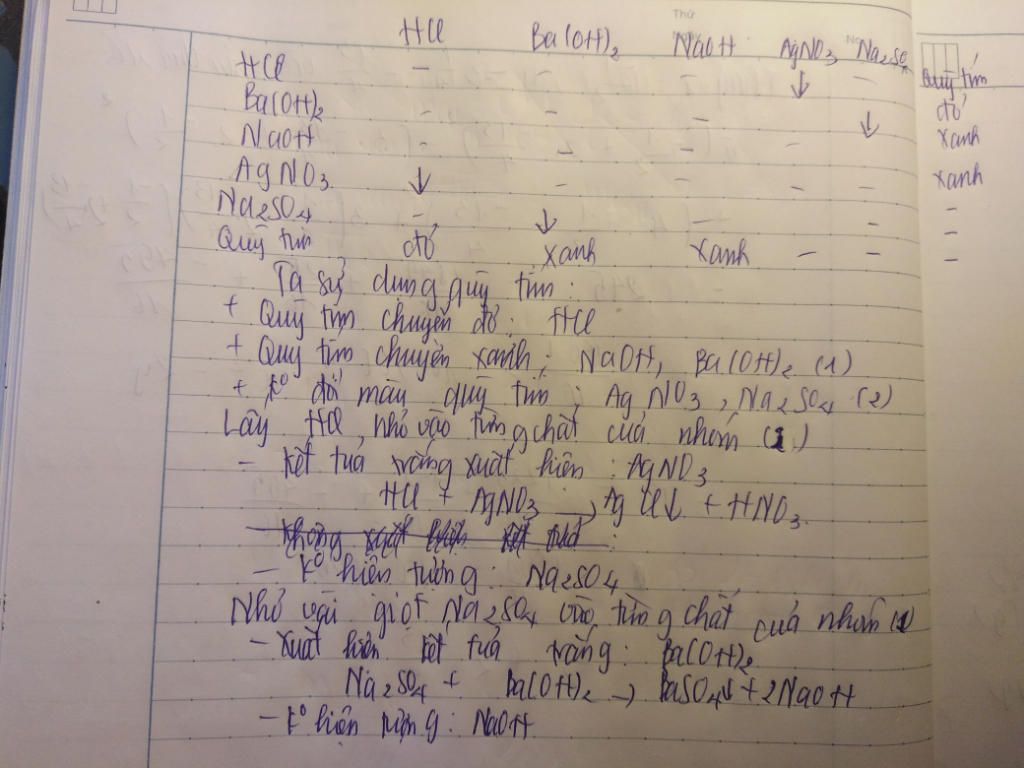 Thứ
HCl Ba(OH)₂ NaOH AgNO₃ Na₂SO₄
HCl - - ↓ -
Ba(OH)₂ - - - ↓
NaOH - - - -
AgNO₃ ↓ - - - -
Na₂SO₄ - ↓ - -
Quỳ tím đỏ xanh xanh - -
Ta sử dụng quỳ tím:
+ Quỳ tím chuyển đỏ: HCl
+ Quỳ tím chuyển xanh: NaOH, Ba(OH)₂ (1)
+ k⁰ đổi màu quỳ tím: AgNO₃, Na₂SO₄ (2)
Lấy HCl, nhỏ vào từng chất của nhóm
- kết tủa trắng xuất hiện: AgNO₃
HCl + AgNO₃ → AgCl↓ + HNO₃
- không xuất hiện kết tủa:
- k⁰ hiện tượng: Na₂SO₄
Nhỏ vài giọt Na₂SO₄ vào từng chất của nhóm (1)
- Xuất hiện kết tủa trắng: Ba(OH)₂
Na₂SO₄ + Ba(OH)₂ → BaSO₄↓ + 2NaOH
- k⁰ hiện tượng: NaOH
Quỳ tím
đỏ
xanh
xanh
-
-
-